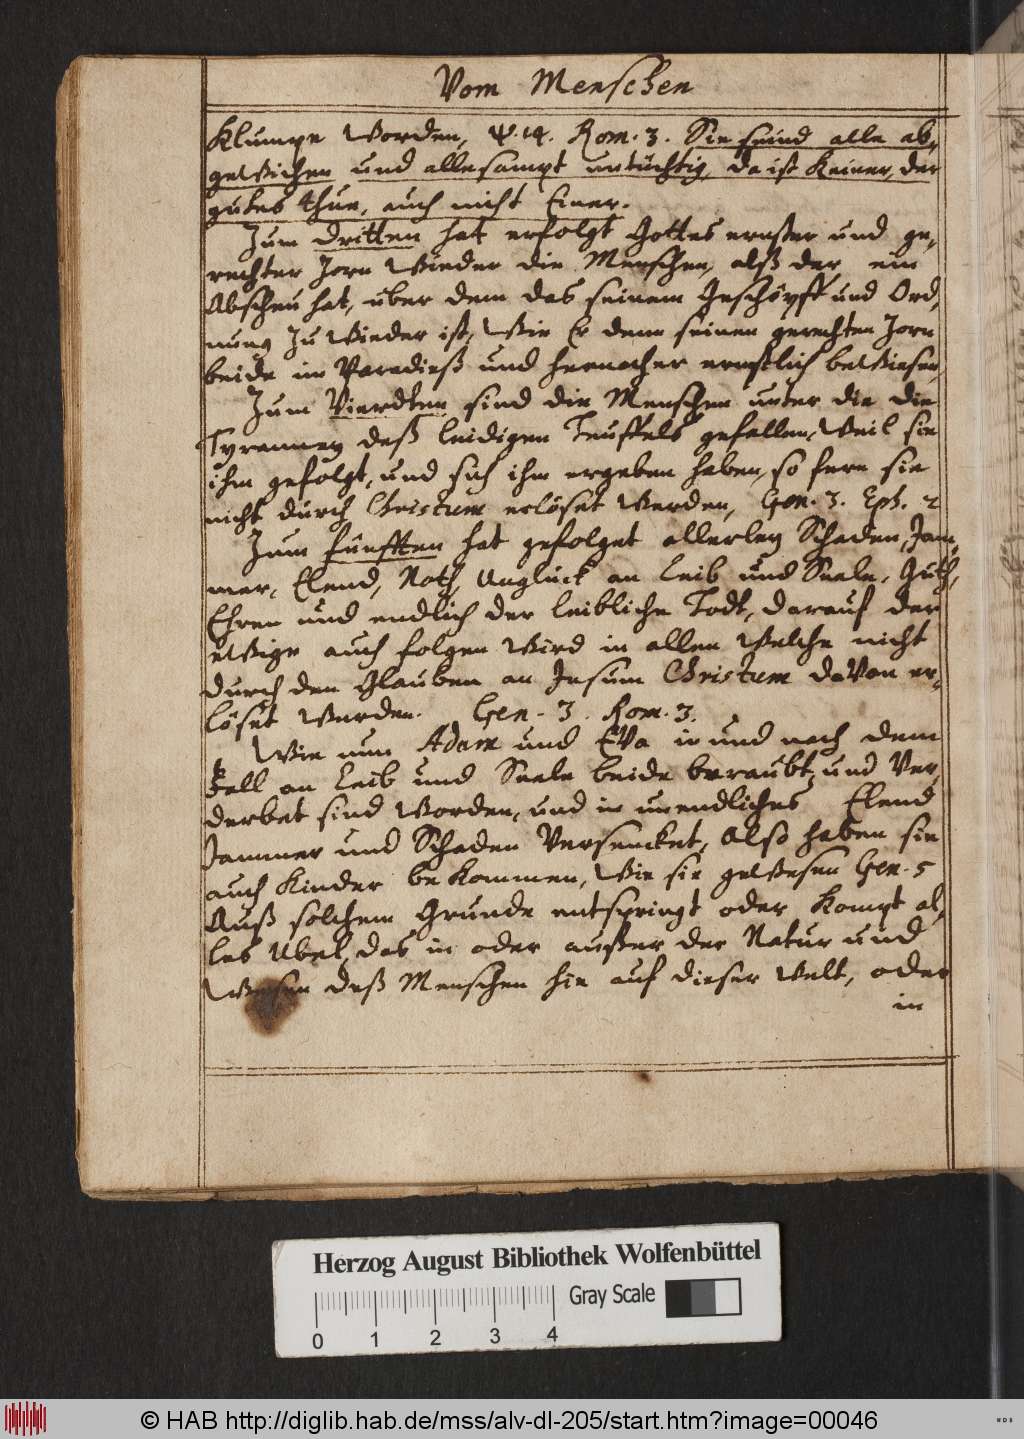 Vom Menschen
Klumpe worden, Ψ. 14. Rom. 3. Sie seind alle ab,
gewichen und allesampt untüchtig, da ist Keiner, der
gutes thue, auch nicht Einer.
Zum dritten hat erfolgt Gottes ernster und ge,
rechter Zorn wieder die Menschen, alß der ein
Abscheu hat, über dem das seinem Geschöpff und Ord,
nung zu wieder ist, wie Er denn seinen gerechten Zorn
beide im Paradieß und hernacher ernstlich bewiesen,
Zum Vierdten sind die Menschen unter die die
Tyranney deß leidigen Teuffels gefallen, weil sie
ihm gefolgt, und sich ihm ergeben haben, so fern sie
nicht durch Christum erlöset werden, Gen. 3. Eph. 2
Zum fünfften hat gefolget allerley Schaden, Jam,
mer, Elend, Noth, Unglück an Leib und Seele, Guth,
Ehren und endlich der leibliche Todt, darauf der
ewige auch folgen wird in allen welche nicht
durch den Glauben an Jesum Christum davon er,
löset werden. Gen. 3. Rom. 3.
Wie nun Adam und Eva in und nach dem
Fall an Leib und Seele beide beraubt, und Ver,
derbet sind worden, und in unendliches Elend
Jammer und Schaden Versencket, Also haben sie
auch Kinder bekommen, wie sie gewesen Gen. 5
Auß solchem Grunde entspringt oder kompt al,
les Ubel, das in oder außer der Natur und
Wesen deß Menschen hie auf dieser Welt, oder
in
Herzog August Bibliothek Wolfenbüttel
Gray Scale
0 1 2 3 4
© HAB http://diglib.hab.de/mss/alv-dl-205/start.htm?image=00046
WDB